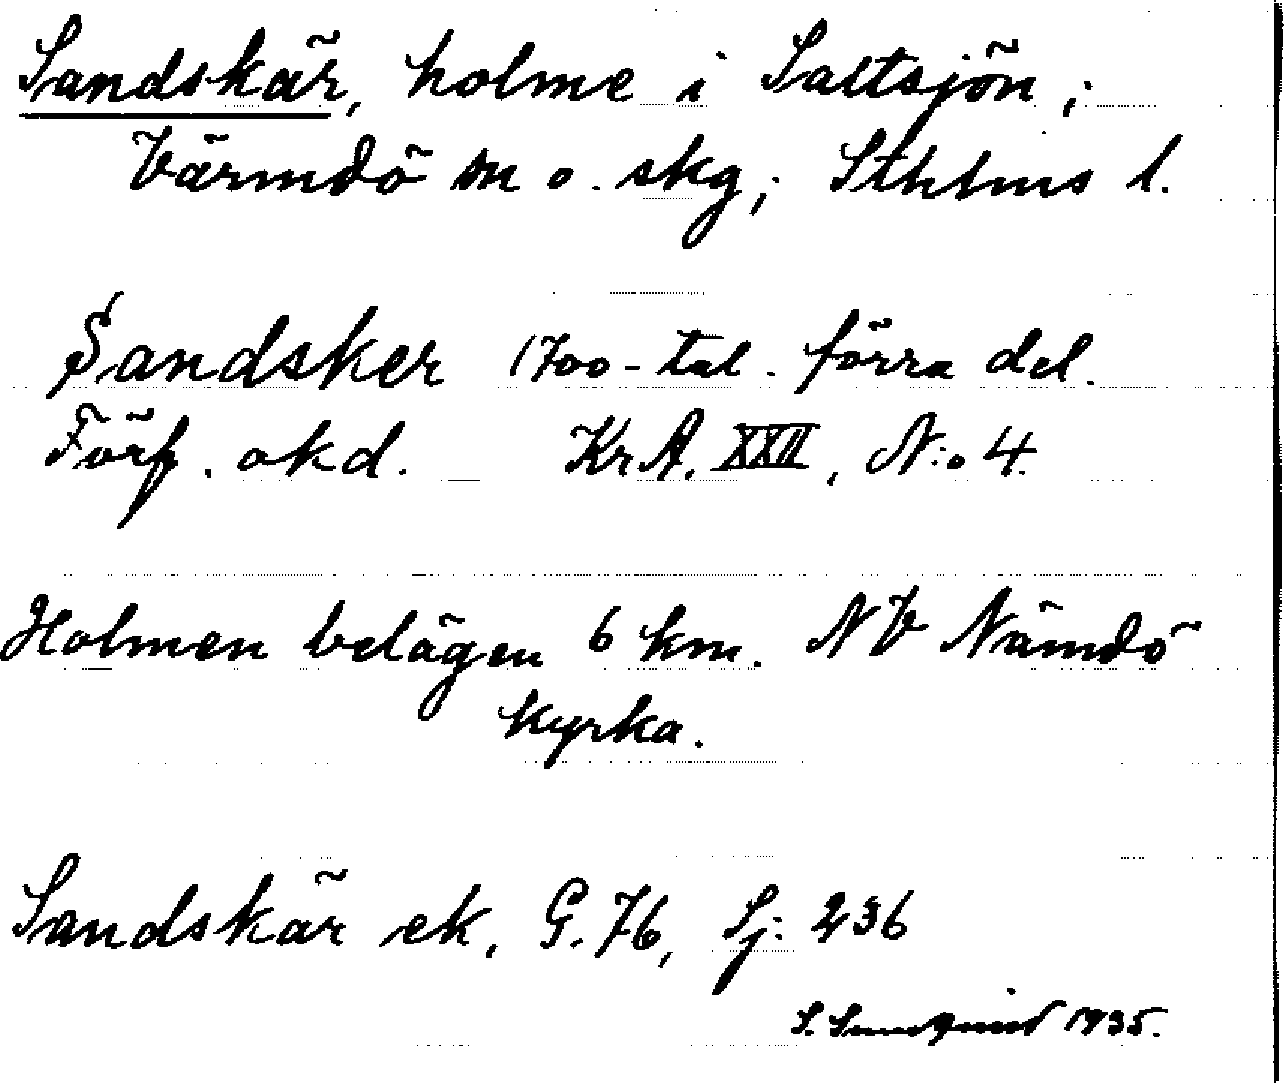 Sandskär, holme i Saltsjön;
Värmdö sn o. skg; Sthlms l.
Sandsker 1700-tal. förra del.
Förf. okd. KrA. XXII, N:o 4.
Holmen belägen 6 km. NV Nämdö
kyrka.
Sandskär ek. G. 76, Sj: 236
S. 1935.